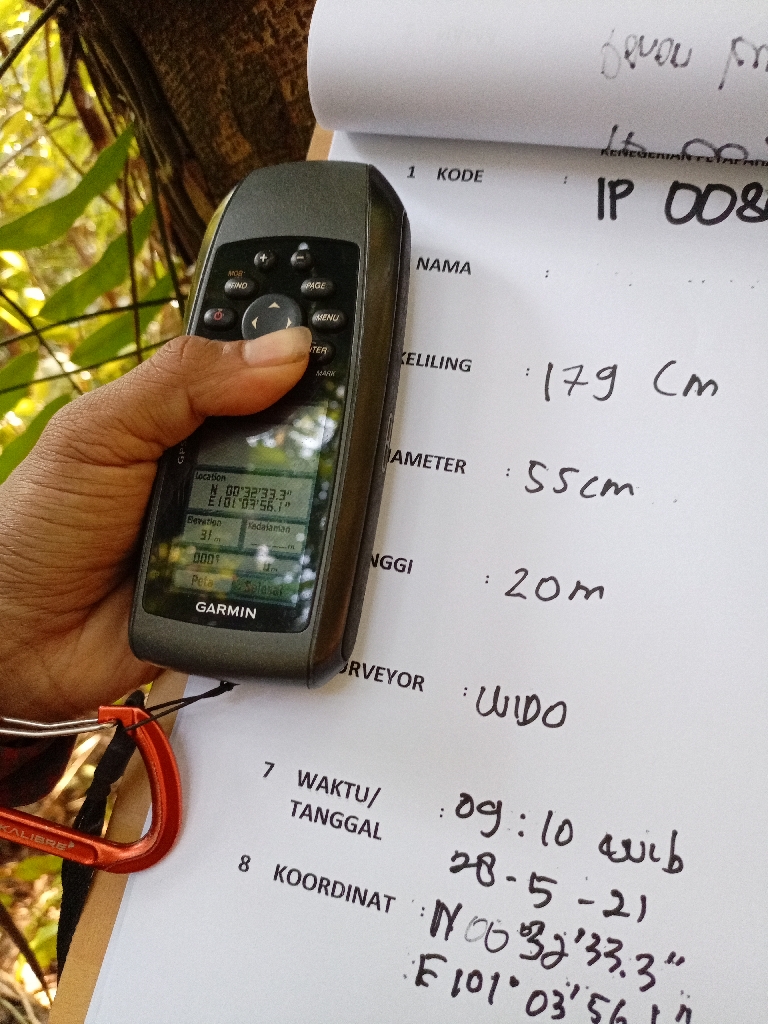 KENEGERIAN PETAPAHAN
1 KODE : IP 008
NAMA :
KELILING : 179 Cm
DIAMETER : 55 cm
NGGI : 20 m
SURVEYOR : WIDO
7 WAKTU/ : 09:10 wib
TANGGAL 28-5-21
8 KOORDINAT : N 00°32'33.3"
: E 101° 03' 56.1"
MOB
FIND
PAGE
MENU
ENTER
MARK
GP
Location
N 00°32'33.3"
E101°03'56.1"
Elevation
31 m
Kedalaman
m
0001
0 m
Peta
Selesai
GARMIN
KALIBRE